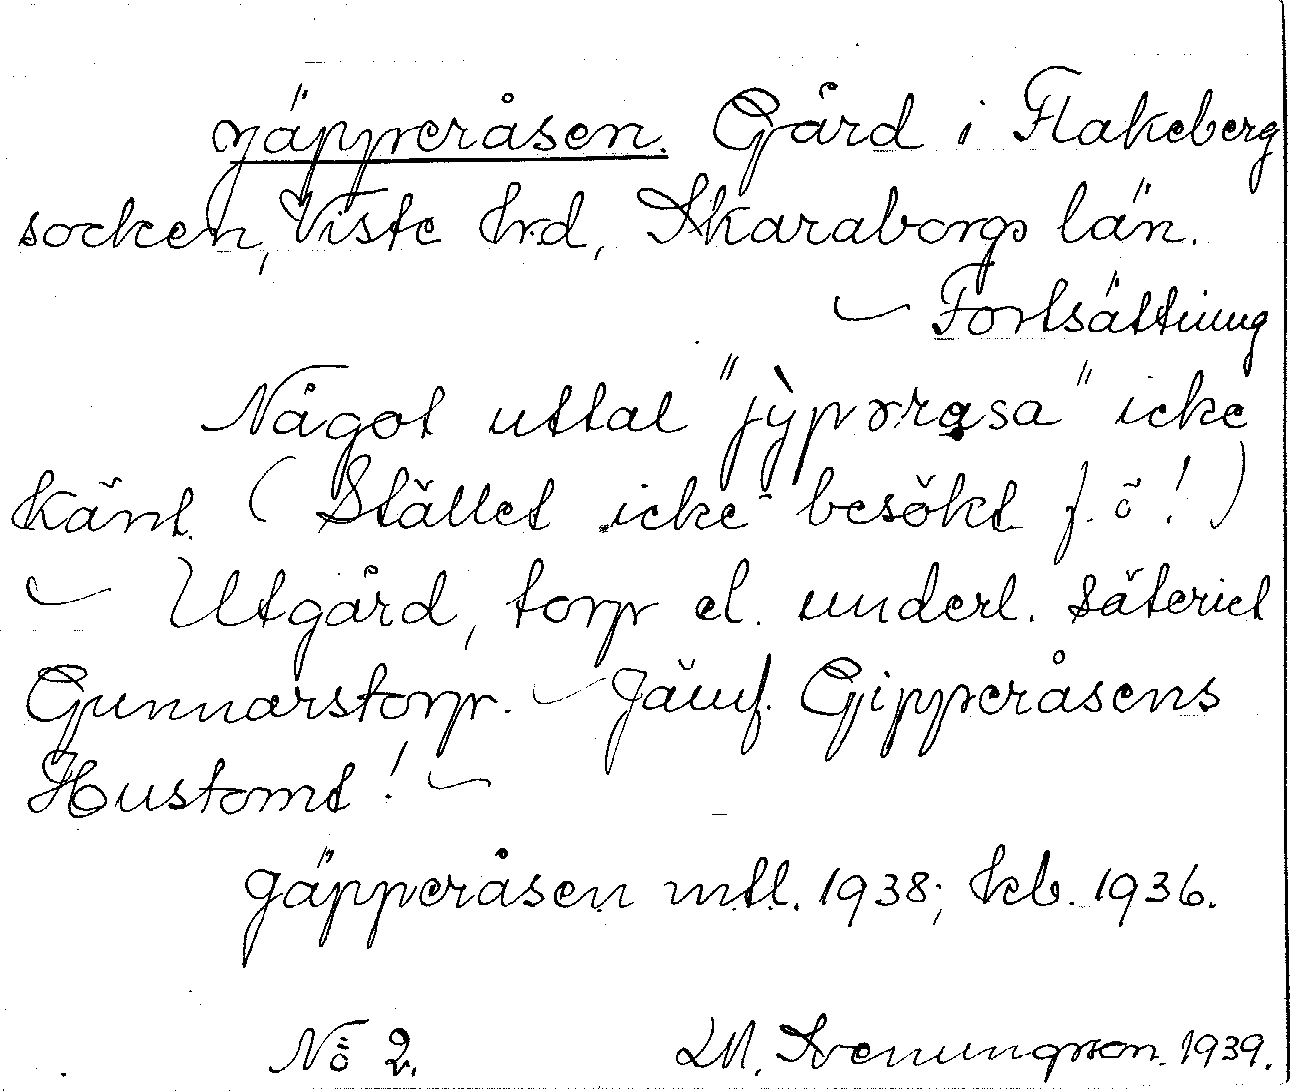 gäpperåsen. Gård i Flakeberg
socken, Viste hrd, Skaraborgs län.
— Fortsättning
Något uttal "jỳpərasa" icke
känt. (Stället icke besökt f. ö!)
— Utgård, torp el. underl. säteriet
Gunnarstorp. — Jämf. Gipperåsens
Hustomt! —
gäpperåsen mtl. 1938; kb. 1936.
No 2. 1939.